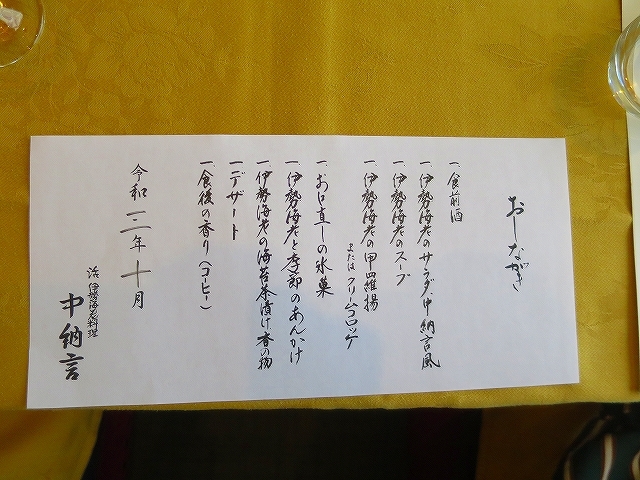 おしながき
一 食前酒
一 伊勢海老のサラダ、中納言風
一 伊勢海老のスープ
一 伊勢海老の甲羅揚
または クリームコロッケ
一 お口直しの氷菓
一 伊勢海老と季節のあんかけ
一 伊勢海老の海苔茶漬け 香の物
一 デザート
一 食後の香り(コーヒー)
令和二年十月
活 伊勢海老料理
中納言